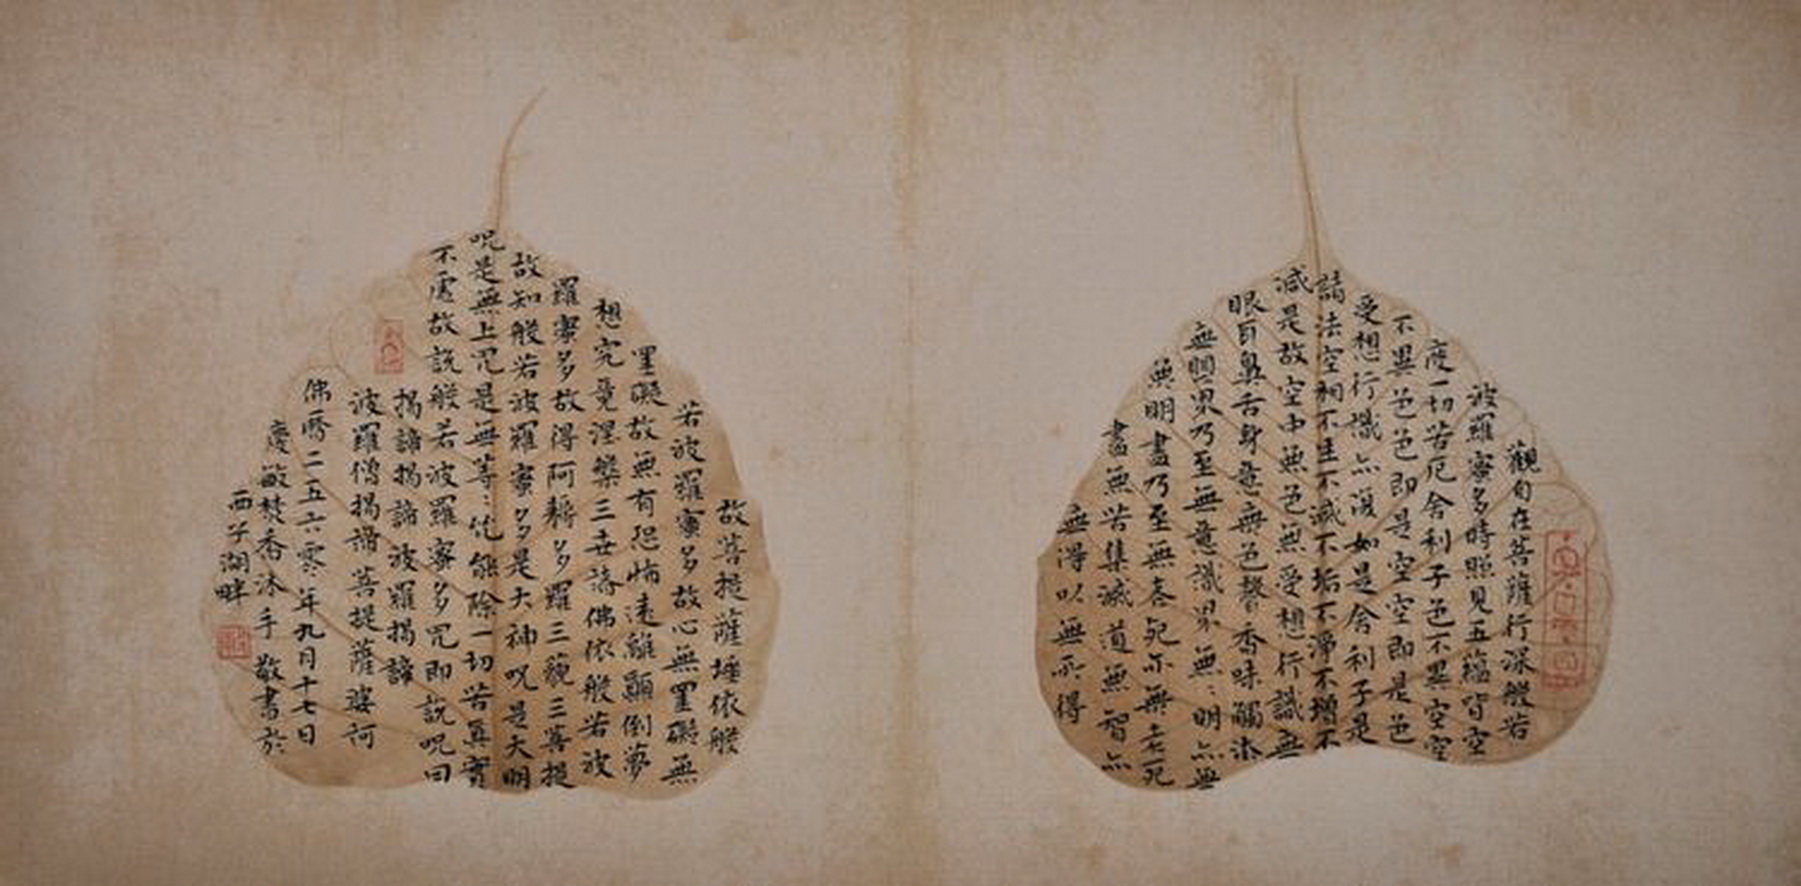 觀自在菩薩行深般若
波羅蜜多時照見五蘊皆空
度一切苦厄舍利子色不異空空
不異色色即是空空即是色
受想行識亦復如是舍利子是
諸法空相不生不滅不垢不淨不增不
減是故空中無色無受想行識無
眼耳鼻舌身意無色聲香味觸法
無眼界乃至無意識界無〻明亦無
無明盡乃至無老死亦無老死
盡無苦集滅道無智亦
無得以無所得
故菩提薩埵依般
若波羅蜜多故心無罣礙無
罣礙故無有恐怖遠離顛倒夢
想究竟涅槃三世諸佛依般若波
羅蜜多故得阿耨多羅三藐三菩提
故知般若波羅蜜多是大神咒是大明
咒是無上咒是無等〻咒能除一切苦真實
不虛故說般若波羅蜜多咒即說咒曰
揭諦揭諦波羅揭諦
波羅僧揭諦菩提薩婆訶
佛曆二五六零年九月十七日
慶敏焚香沐手敬書於
西子湖畔